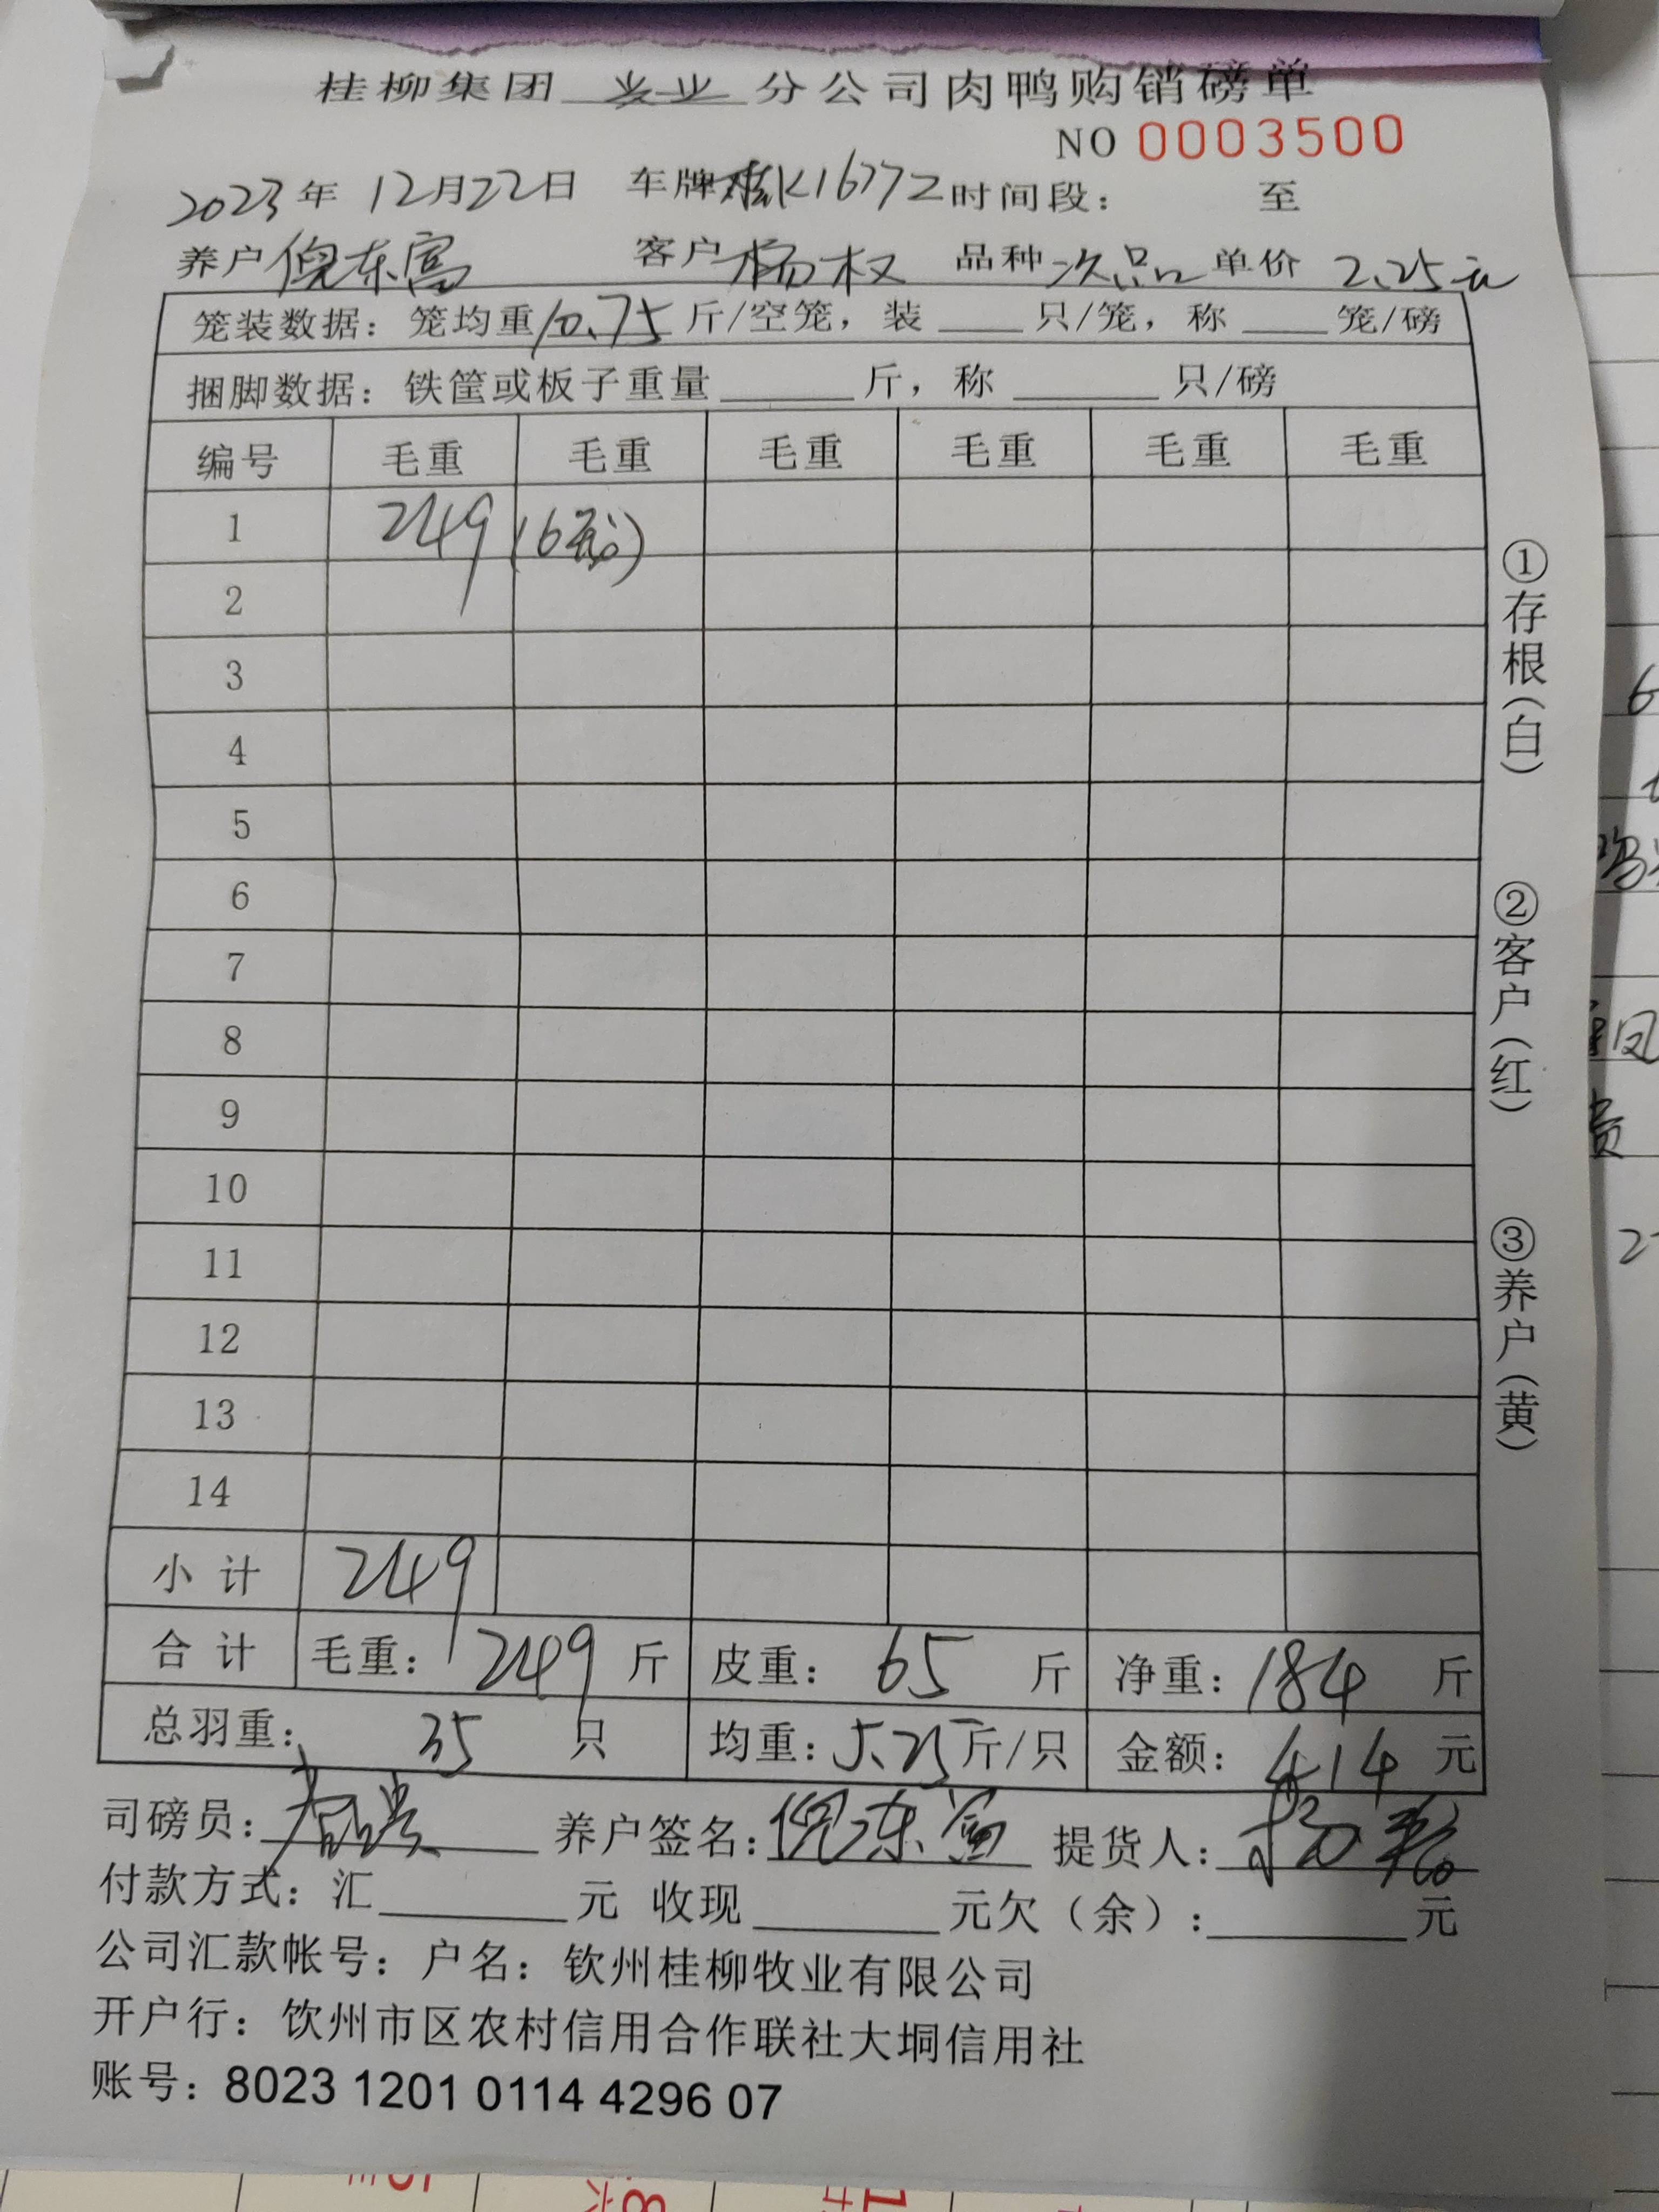 桂柳集团 兴业 分公司肉鸭购销磅单
NO 0003500
2023年 12月22日 车牌桂K16772 时间段: 至
养户 倪东富 客户 杨权 品种 次品 单价 2.25元
笼装数据: 笼均重10.75斤/空笼, 装____只/笼, 称____笼/磅
捆脚数据: 铁筐或板子重量______斤, 称______只/磅
编号 毛重 毛重 毛重 毛重 毛重 毛重
1 249 (6
2
3
4
5
6
7
8
9
10
11
12
13
14
小计 249
合计 毛重: 249 斤 皮重: 65 斤 净重: 184 斤
总羽重: 35 只 均重: 5.25斤/只 金额: 414 元
司磅员: 养户签名: 倪东富 提货人: 杨
付款方式: 汇________元 收现________元欠(余):________元
公司汇款帐号: 户名: 钦州桂柳牧业有限公司
开户行: 饮州市区农村信用合作联社大垌信用社
账号: 8023 1201 0114 4296 07
①存根(白)
②客户(红)
③养户(黄)